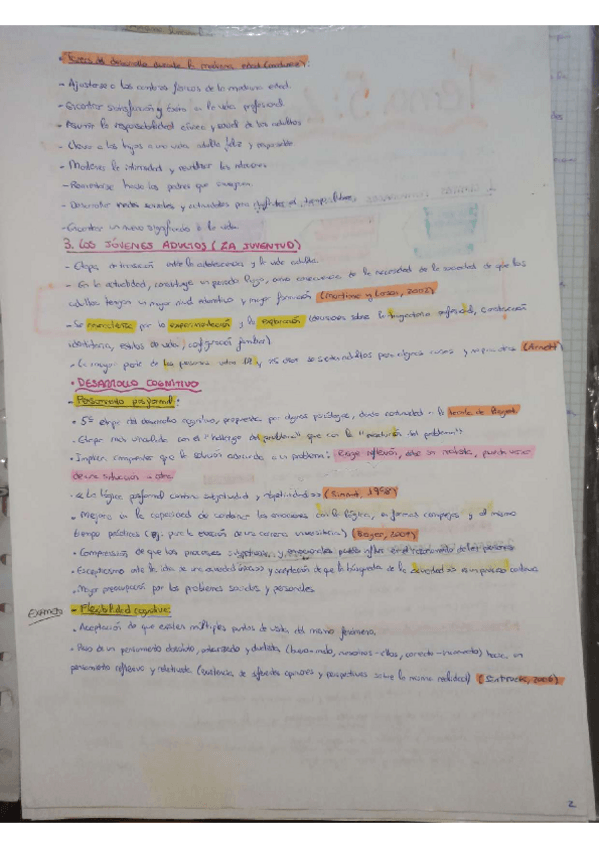 • Tareas de desarrollo durante la mediana edad (madurez):
- Ajustarse a los cambios físicos de la mediana edad.
- Encontrar satisfacción y éxito en la vida profesional.
- Asumir la responsabilidad cívica y social de los adultos
- a los hijos a una vida adulta feliz y responsable
- la intimidad y las relaciones
- hacia los padres que envejecen.
- Desarrollar sociales y actividades para
- Encontrar un nuevo significado a la vida.
3. LOS JÓVENES ADULTOS (LA JUVENTUD)
- Etapa de transición entre la adolescencia y la vida adulta.
- En la actualidad, constituye un periodo largo, como consecuencia de la necesidad de la sociedad de que los
adultos tengan un mayor nivel educativo y mayor formación
- Se caracteriza por la experimentación y la exploración (decisiones sobre la trayectoria profesional, construcción
identitaria, estilos de vida, configuración familiar)
- La mayor parte de las personas entre y 25 años se sienten adultos para algunas cosas y no para otras (Arnett)
• DESARROLLO COGNITIVO
- Pensamiento posformal:
• 5ª etapa del desarrollo cognitivo, propuesta por algunos psicólogos, dando continuidad a la teoría de Piaget.
• Etapa más vinculada con el "hallazgo del problema" que con la "resolución del problema"
• Implica comprender que la solución adecuada a un problema: Exige reflexión, puede variar
de una situación a otra
• La lógica posformal combina subjetividad y objetividad (Sinnott, 1998)
• Mejora en la capacidad de combinar las emociones con la lógica, en formas complejas y al mismo
tiempo prácticas (ej. para la elección de una carrera universitaria) (Berger, 2009)
• Comprensión de que los procesos subjetivos y emocionales pueden influir en el razonamiento de las personas
• Escepticismo ante la idea de una verdad única y aceptación de que la búsqueda de la verdad es un proceso continuo
• Mayor preocupación por los problemas sociales y personales.
Examen - Flexibilidad cognitiva:
• Aceptación de que existen múltiples puntos de vista del mismo fenómeno.
• Paso de un pensamiento absoluto, polarizado y dualista, (bueno-malo, nosotros-ellos, correcto-incorrecto) hacia un
pensamiento reflexivo y relativista (existencia de diferentes opiniones y perspectivas sobre la misma realidad) (Santrock, 2006)
2